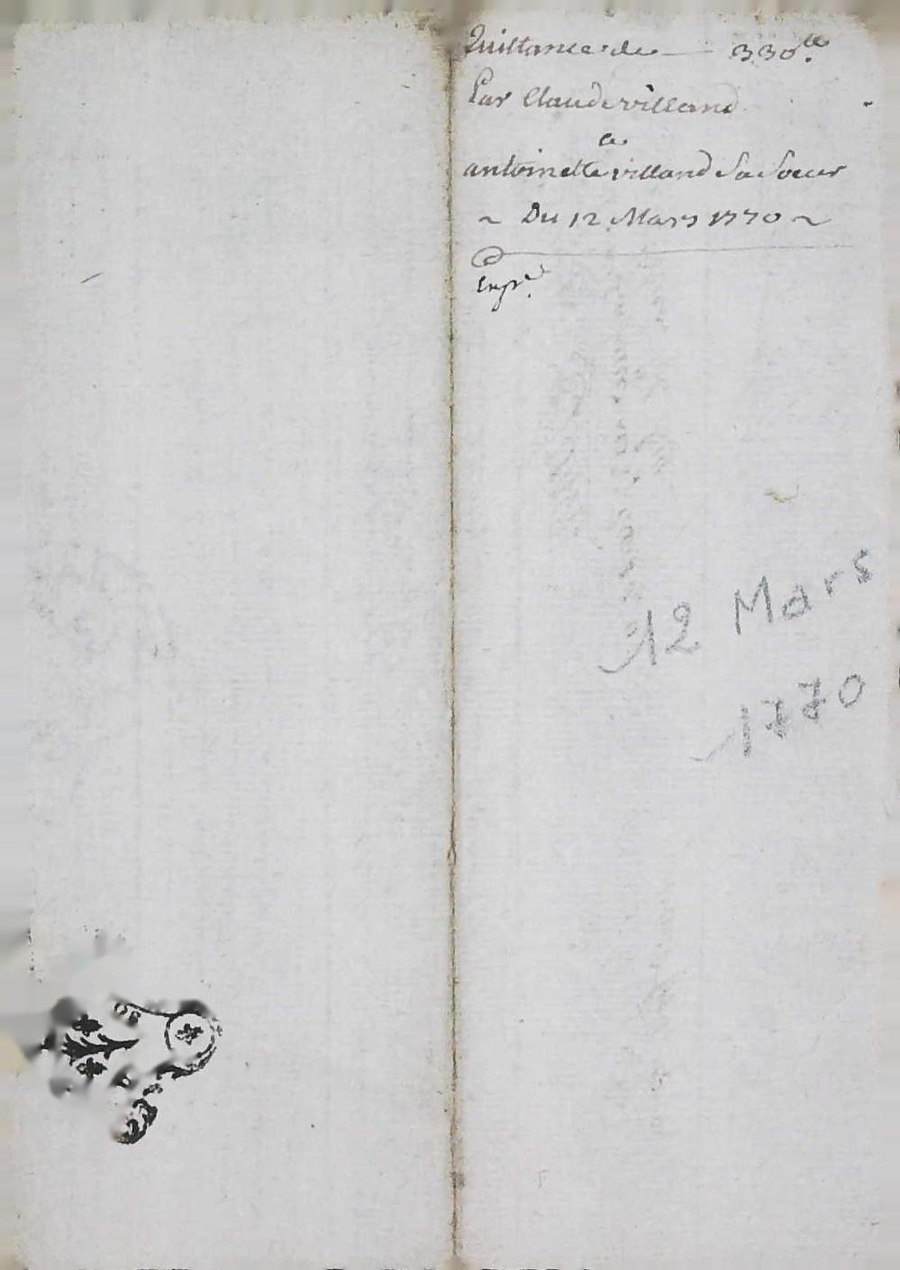 Quittance de — 330 ₶.
Par Claude villand
a
antoinette villand Sa Soeur
~ Du 12 Mars 1770 ~
Exp.é
12 Mars
1770